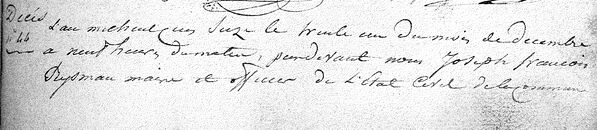 Décès
N° 44
L'an mil huit cens seize le trente un du mois de decembre
a neuf heures du matin, pardevant nous Joseph francois
maire et officier de L'Etat Civil de la commune